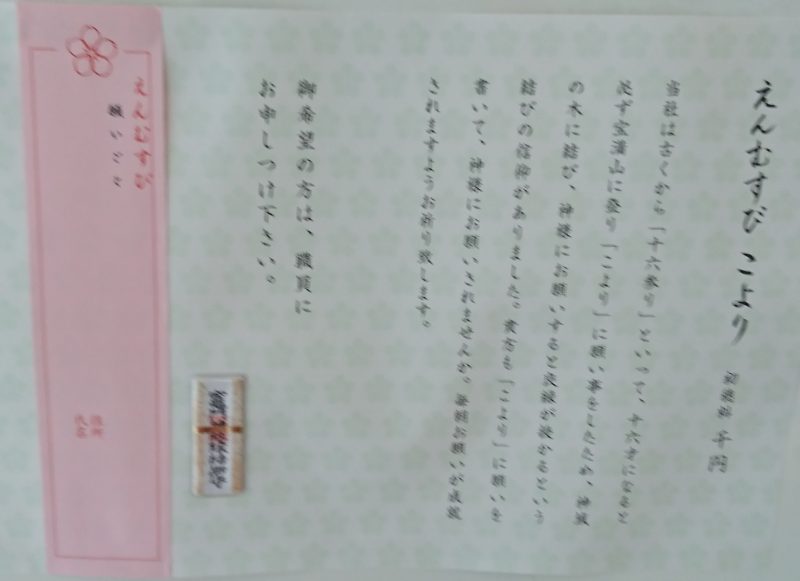 えんむすび こより 初穂料 千円
当社は古くから「十六参り」といって、十六才になると
必ず宝満山に登り「こより」に願い事をしたため、神域
の木に結び、神様にお願いすると良縁が授かるという
結びの信仰がありました。貴方も「こより」に願いを
書いて、神様にお願いされませんか。毎朝お願いが成就
されますようお祈り致します。
御希望の方は、職員に
お申しつけ下さい。
えんむすび
願いごと
住所
氏名